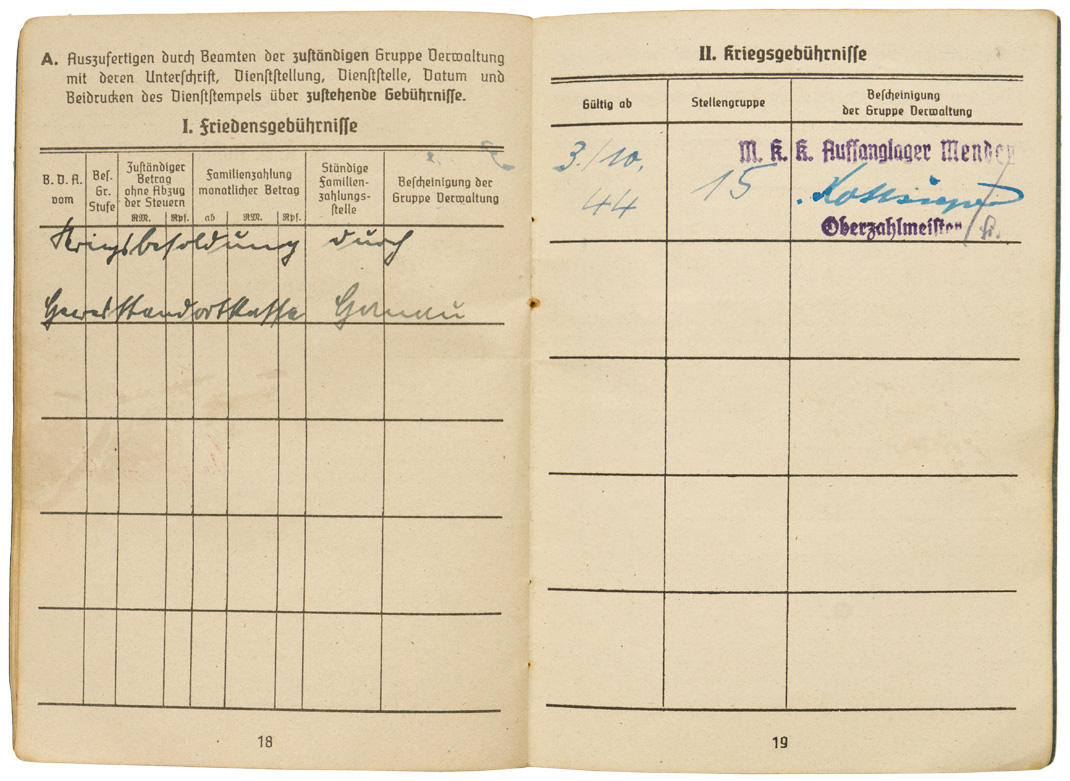 A. Auszufertigen durch Beamten der zuständigen Gruppe Verwaltung
mit deren Unterschrift, Dienststellung, Dienststelle, Datum und
Beidrucken des Dienststempels über zustehende Gebührnisse.
I. Friedensgebührnisse
B. D. A.
vom
Bes.
Gr.
Stufe
Zuständiger
Betrag
ohne Abzug
der Steuern
RM. Rpf.
Familienzahlung
monatlicher Betrag
ab RM. Rpf.
Ständige
Familien-
zahlungs-
stelle
Bescheinigung der
Gruppe Verwaltung
Kriegsbesoldung durch
Heeresstandortkasse Hanau
18
II. Kriegsgebührnisse
Gültig ab
Stellengruppe
Bescheinigung
der Gruppe Verwaltung
3./10.
44
15
M. K. K. Auffanglager Menden
Oberzahlmeister
19